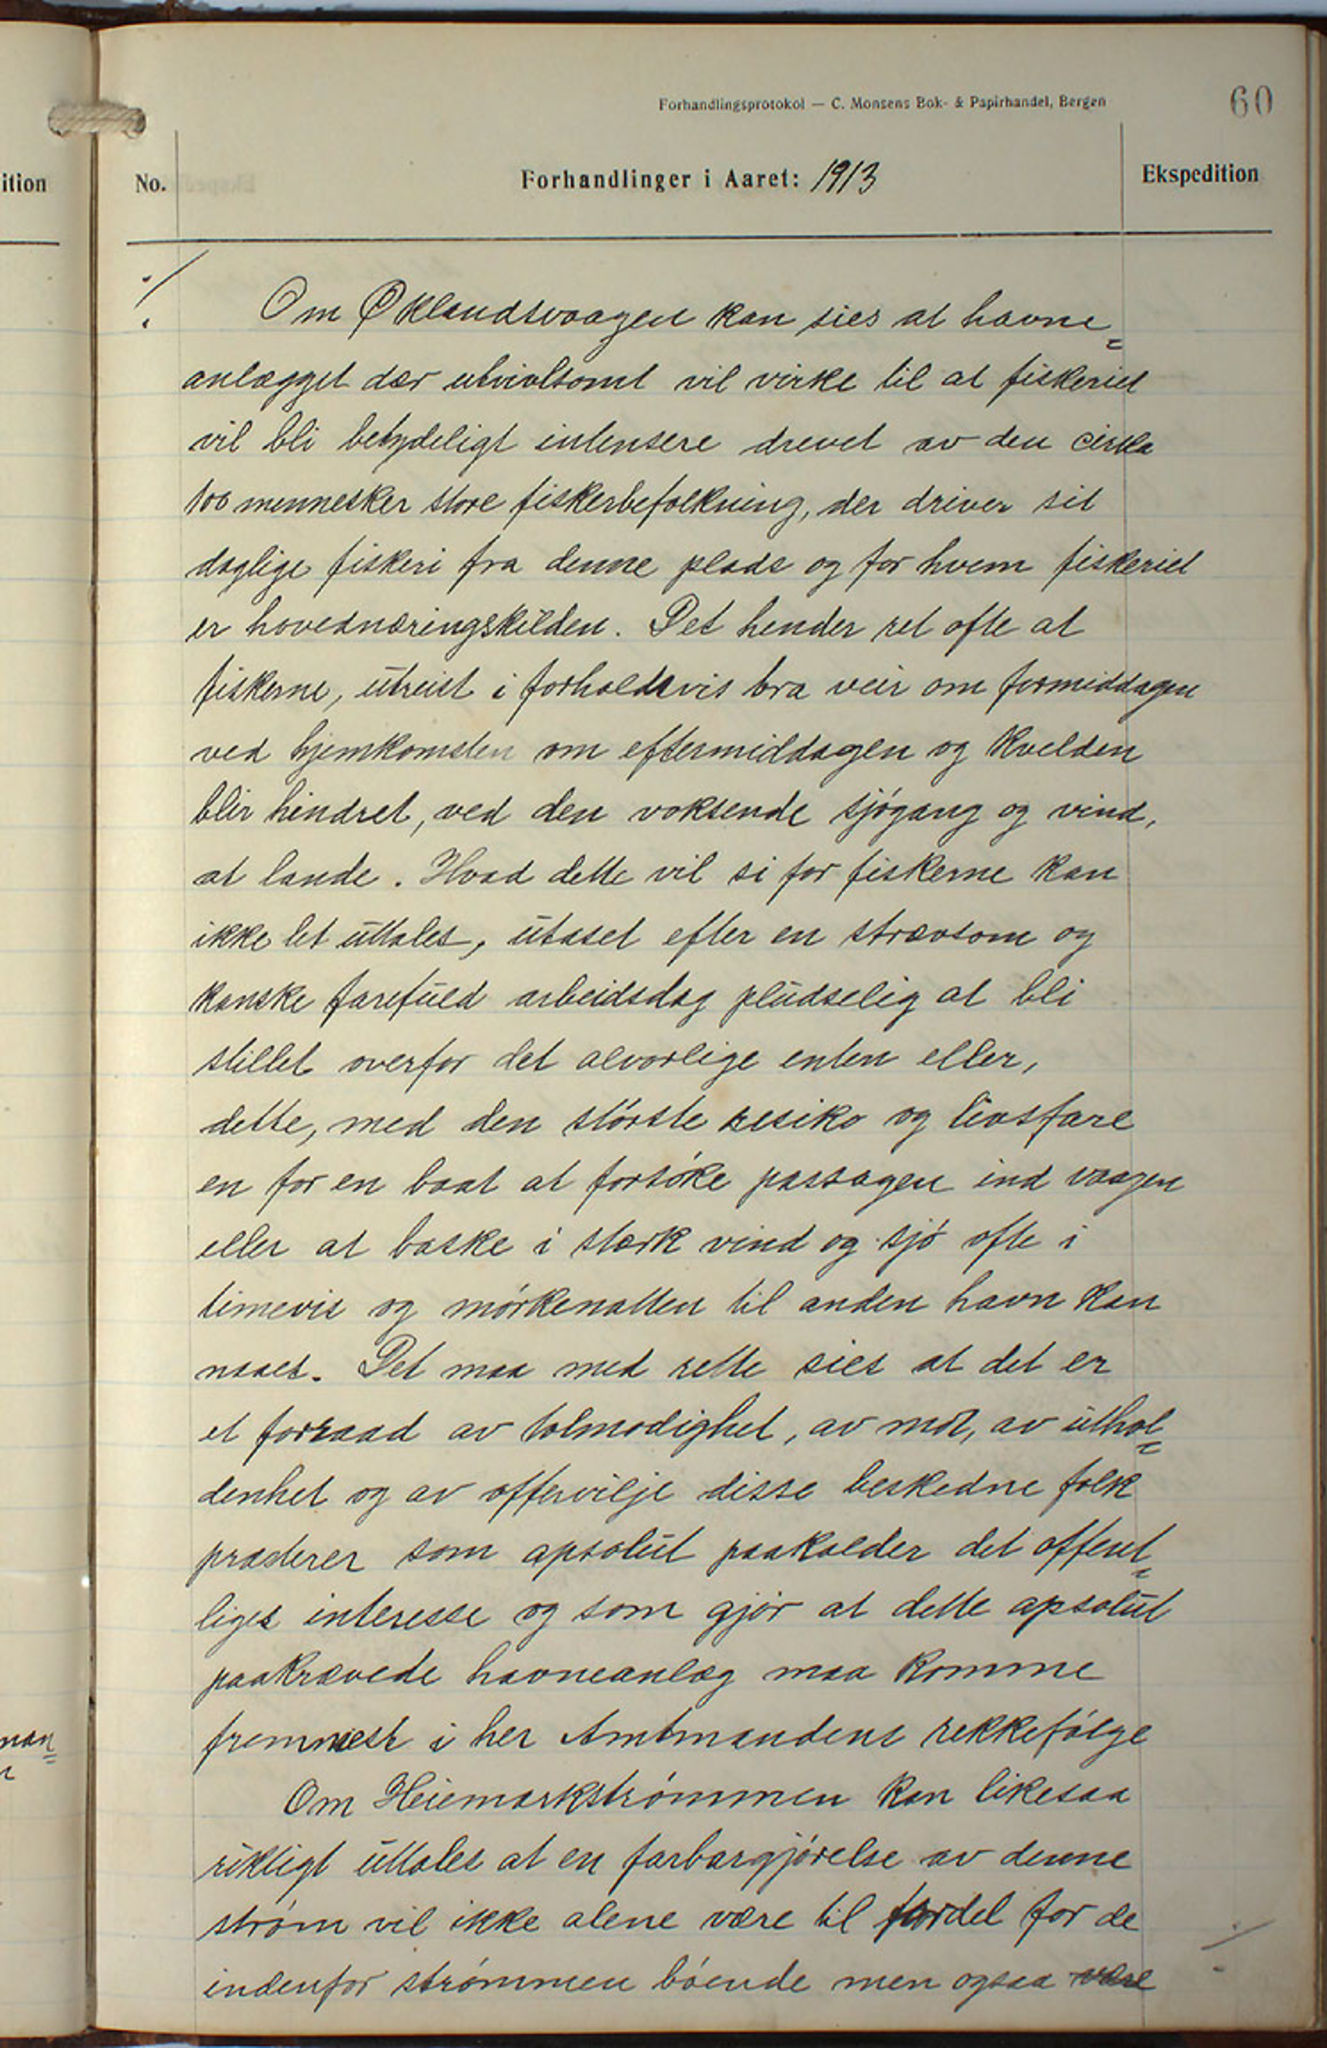 Forhandlingsprotokol — C. Monsens Bok- & Papirhandel, Bergen
60
ition
No.
Forhandlinger i Aaret: 1913
Ekspedition
Om Øklandsvaagen kan sies at havne=
anlægget der utvivlsomt vil virke til at fiskeriet
vil bli betydeligt intensere drevet av den cirka
100 mennesker store fiskerbefolkning, der driver sit
daglige fiskeri fra denne plads og for hvem fiskeriet
er hovednæringskilden. Det hender ret ofte at
fiskerne, utreist i forholdsvis bra veir om formiddagen
ved hjemkomsten om eftermiddagen og kvelden
blir hindret, ved den voksende sjøgang og vind,
at lande. Hvad dette vil si for fiskerne kan
ikke let uttales, utaset efter en strævsom og
kanske farefuld arbeidsdag pludselig at bli
stillet overfor det alvorlige enten eller,
dette, med den største resiko og livsfare
en for en baat at forsøke passagen ind vaagen
eller at baske i stærk vind og sjø ofte i
timevis og mørkenatten til anden havn kan
naaes. Det maa med rette sies at det er
et forraad av tolmodighet, av mot, av uthol=
denhet og av offervilje disse beskedne folk
præsterer som apsolut paakalder det offent=
liges interesse og som gjør at dette apsolut
paakrævede havneanlæg maa komme
fremmest i her Amtmandens rekkefølge
Om Heiemarkstrømmen kan likesaa
riktigt uttales at en farbargjørelse av denne
strøm vil ikke alene være til fordel for de
indenfor strømmen boende men ogsaa være